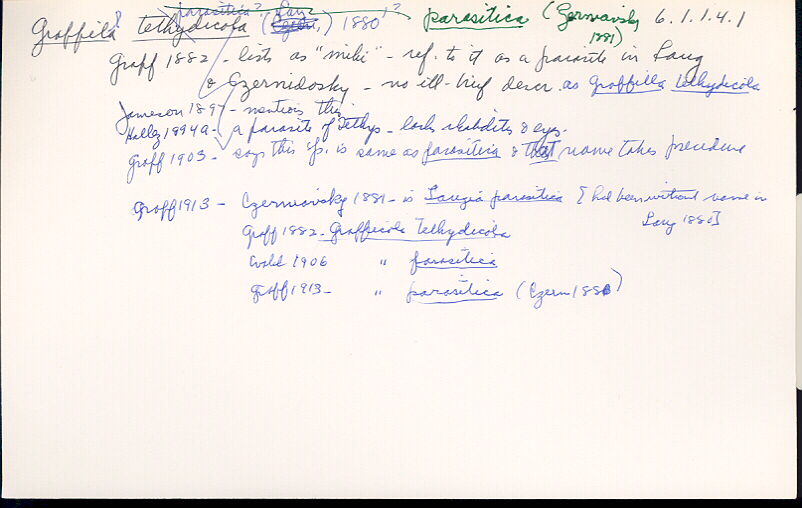 parasitica? Lang !?
Graffilla? tethydicola (Czern.,) 1880 parasitica (Czerniavsky 1881) 6.1.1.4.1
Graff 1882 - lists as "mihi" - ref. to it as a parasite in Lang
& Czernidosky - no ill - brief descr. as Graffilla tethydicola
Jameson 1897 - mentions this
Hallez 1894a - a parasite of Tethys - lacks rhabdites & eyes.
Graff 1903 - says this sp. is same as parasitica & that name takes precedence
Graff 1913 - Czerniavsky 1881 - is Langia parasitica [had been without name in Lang 1880]
Graff 1882 - Graffilla tethydicola
Wahl 1906 " parasitica
Graff 1913 - " parasitica (Czern 1880)